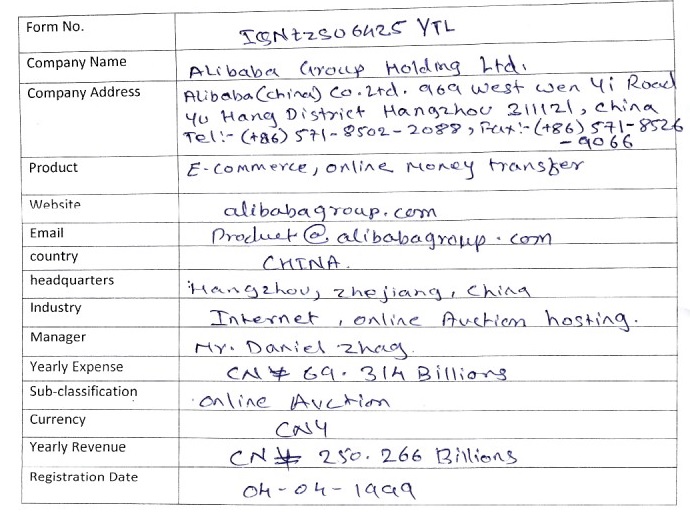 Form No. IGNEZ2SO6425 YTL
Company Name Alibaba Group Holding Ltd.
Company Address Alibaba(China) Co.Ltd. 969 West Wen Yi Road
Yu Hang District Hangzhou 311121, China
Tel:- (+86) 571-8502-2088, Fax:- (+86) 571-8526
-9066
Product E-commerce, online Money transfer
Website alibabagroup.com
Email Product@alibabagroup.com
country CHINA.
headquarters Hangzhou, zhejiang, China
Industry Internet, online Auction hosting.
Manager Mr. Daniel Zhag.
Yearly Expense CN¥ 69.314 Billions
Sub-classification online Auction
Currency CNY
Yearly Revenue CN¥ 250.266 Billions
Registration Date 04-04-1999